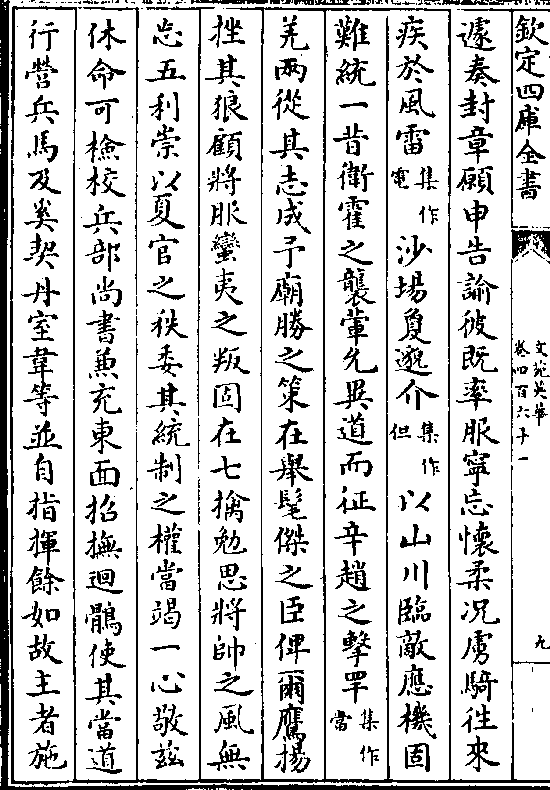 欽定四庫全書
文苑英華
卷四百六十一
九
遽奏封章願申告諭彼既率服寧忘懷柔况虜騎徃來
疾於風雷集作電沙場夐邈介集作但以山川臨敵應機固
難統一昔衛霍之襲葷允異道而征辛趙之擊罕集作當
羌兩從其志成予廟勝之策在舉髦傑之臣俾爾鷹揚
挫其狼顧將服蠻夷之叛固在七擒勉思將帥之風無
忘五利崇以夏官之秩委其統制之權當竭一心敬兹
休命可檢校兵部尚書兼充東面招撫迴鶻使其當道
行營兵馬及奚契丹室韋等並自指揮餘如故主者施